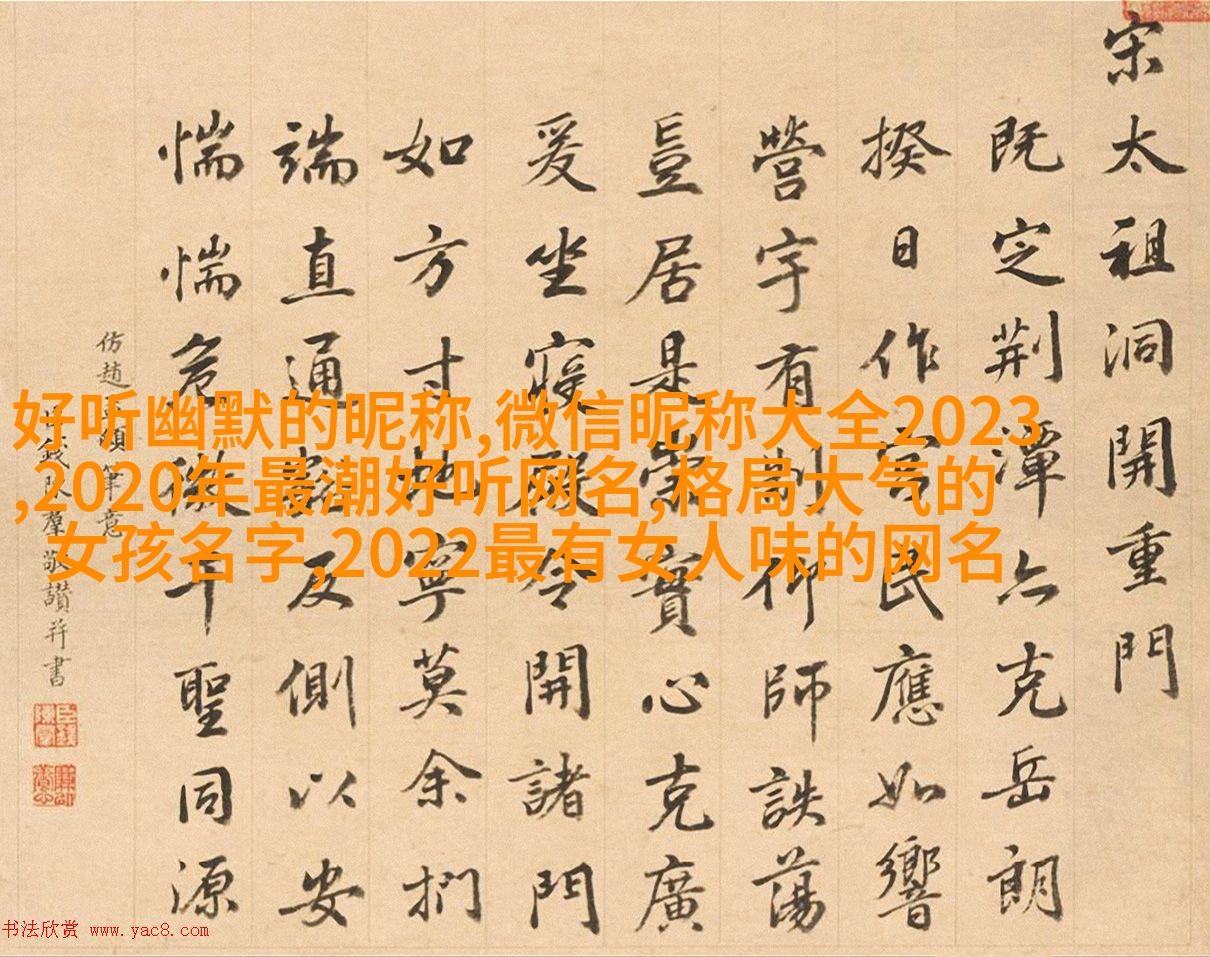 宋太祖洞開重門
既定荆潭亦克岳朗
揆日作宮民應如響
營宇有制仰師詄蕩
豈居是崇實心克廣
爰坐寢殿令開諸門
如方寸地寧莫余捫
端直通及側以安
惴惴危微千聖同源
仿趙孟頫筆意
臣錢陳羣敬讚并書
好听幽默的昵称,微信昵称大全2023
,2020年最潮好听网名,格局大气的
女孩名字,2022最有女人味的网名
书法欣赏 www.yac8.com